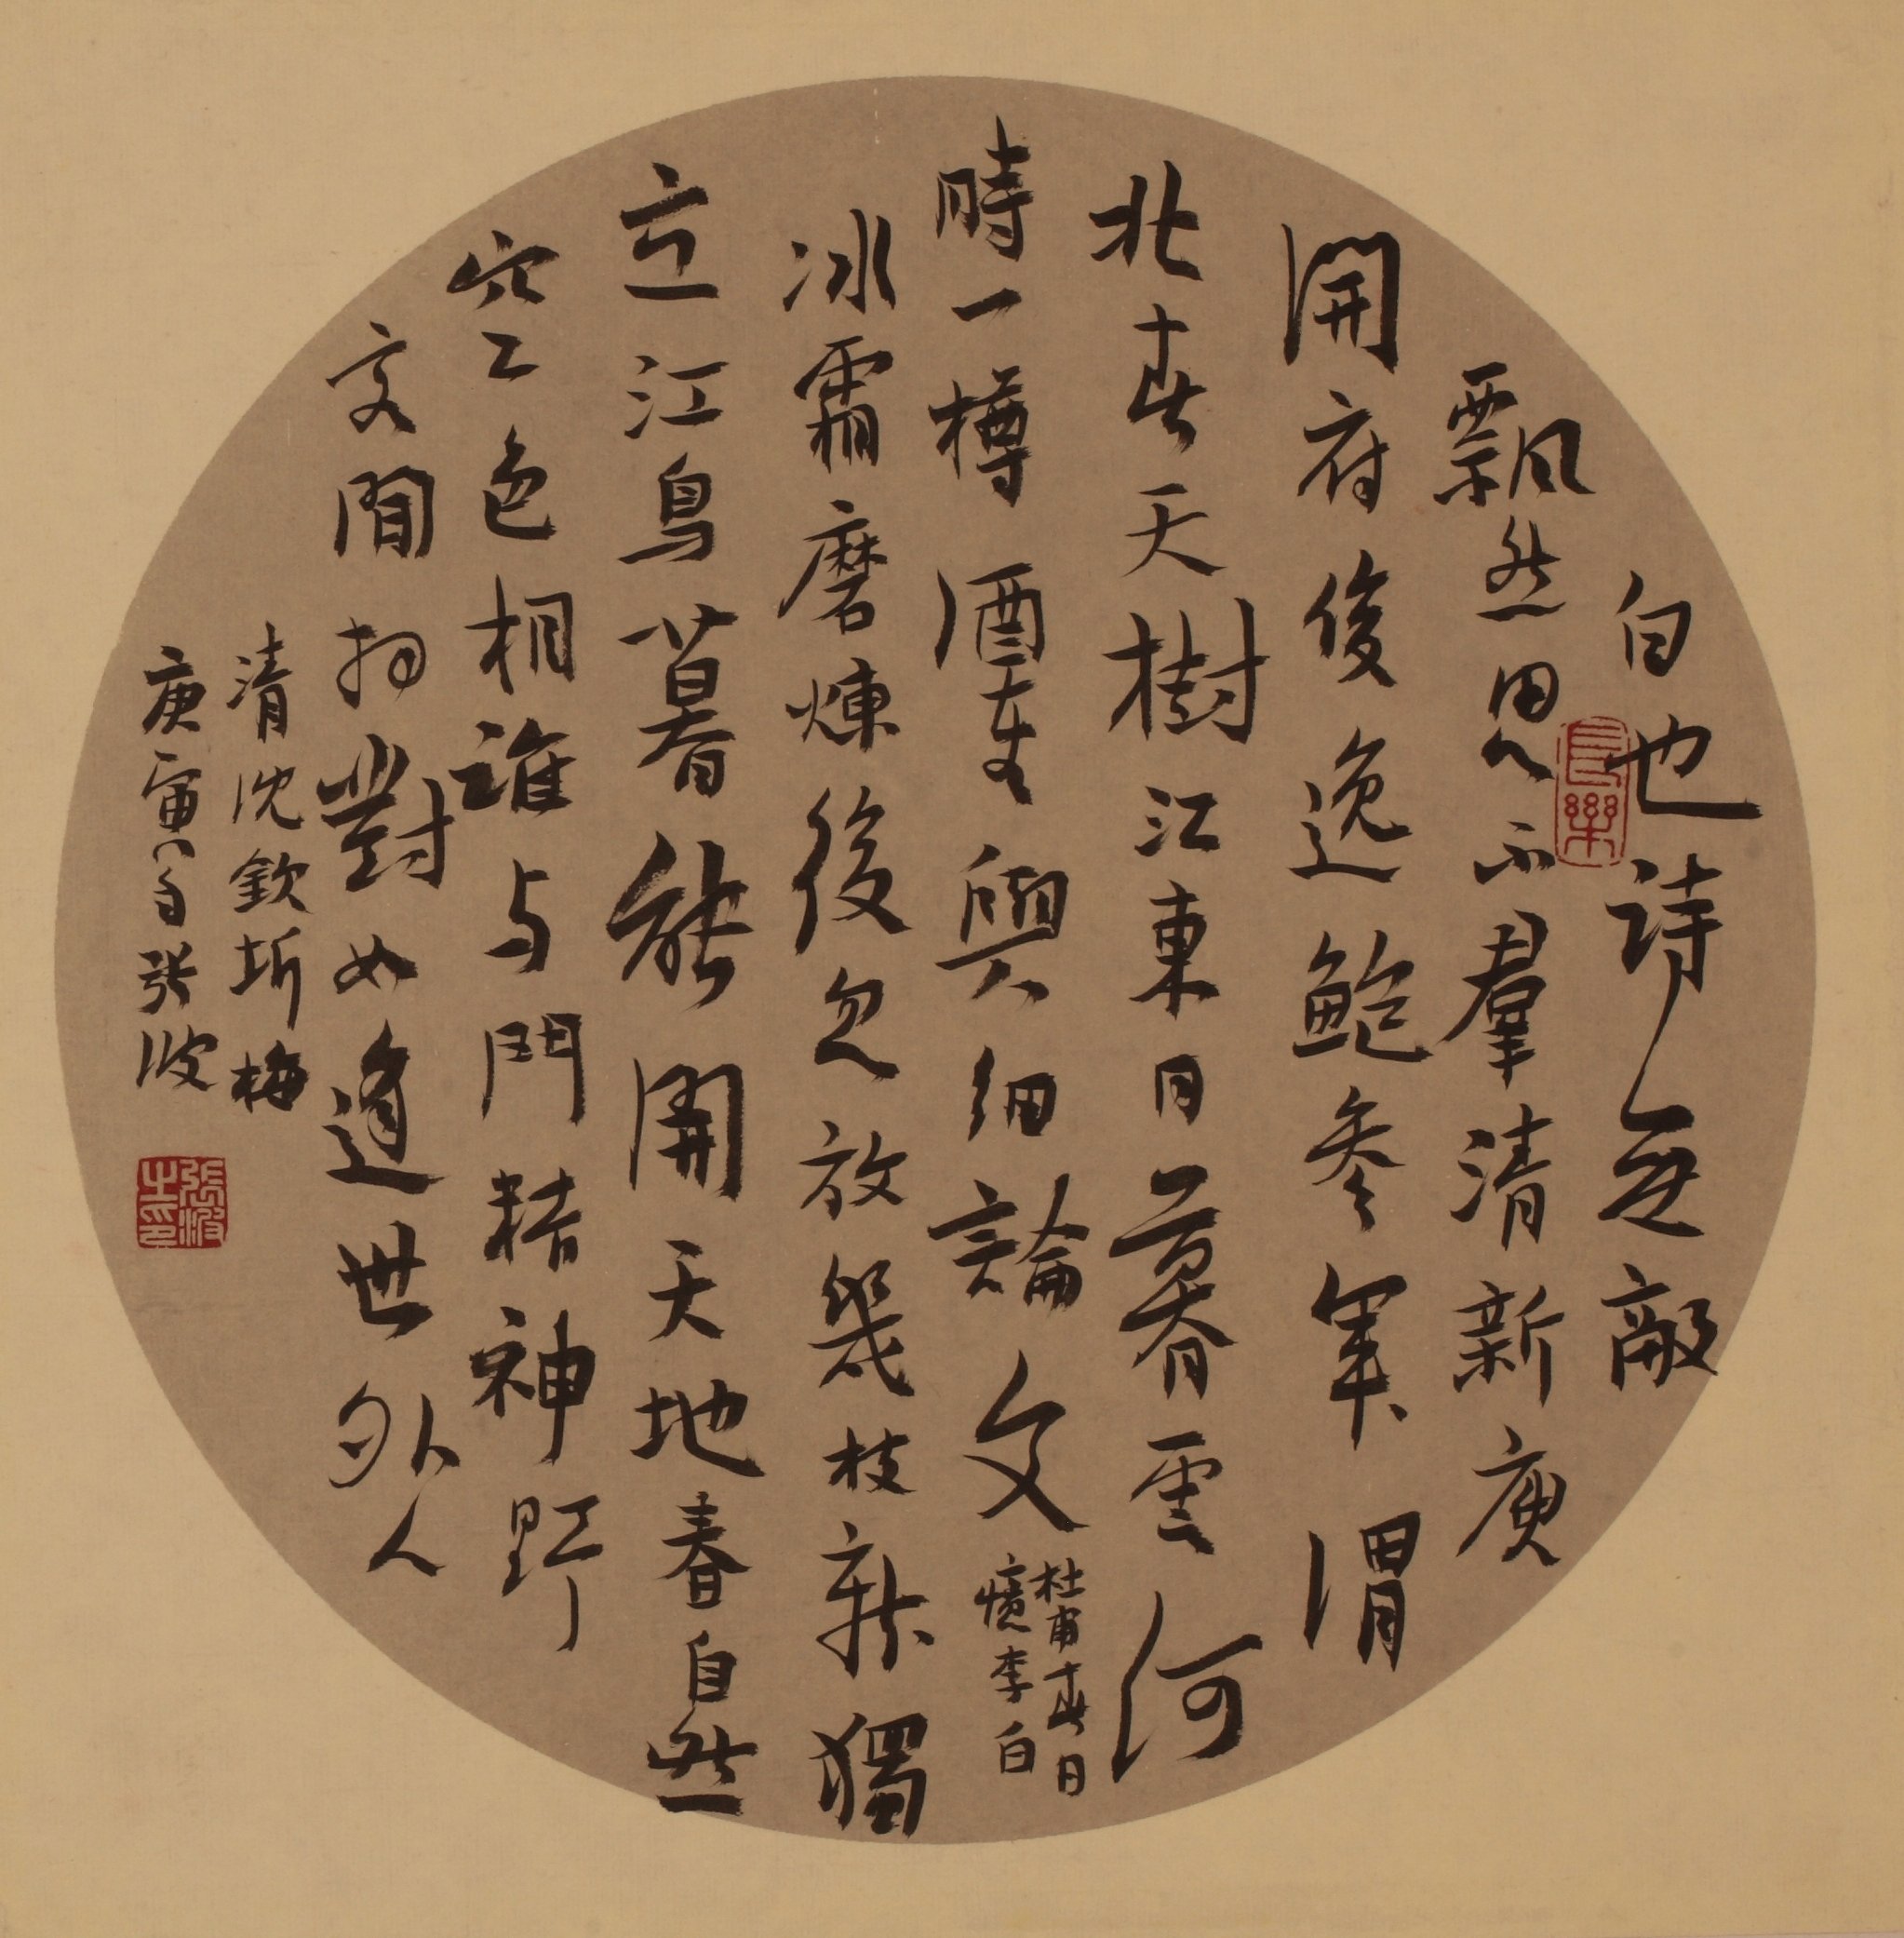 白也詩無敵
飄然思不羣清新庾
開府俊逸鮑參軍渭
北春天樹江東日暮雲何
時一樽酒重與細論文
杜甫春日
憶李白
冰霜磨煉後忽放幾枝新獨
立江鳥暮能開天地春自然
空色相誰与門精神野
交閒相對如逢世外人
清沈欽圻梅
庚寅書張波
長樂
張波之印